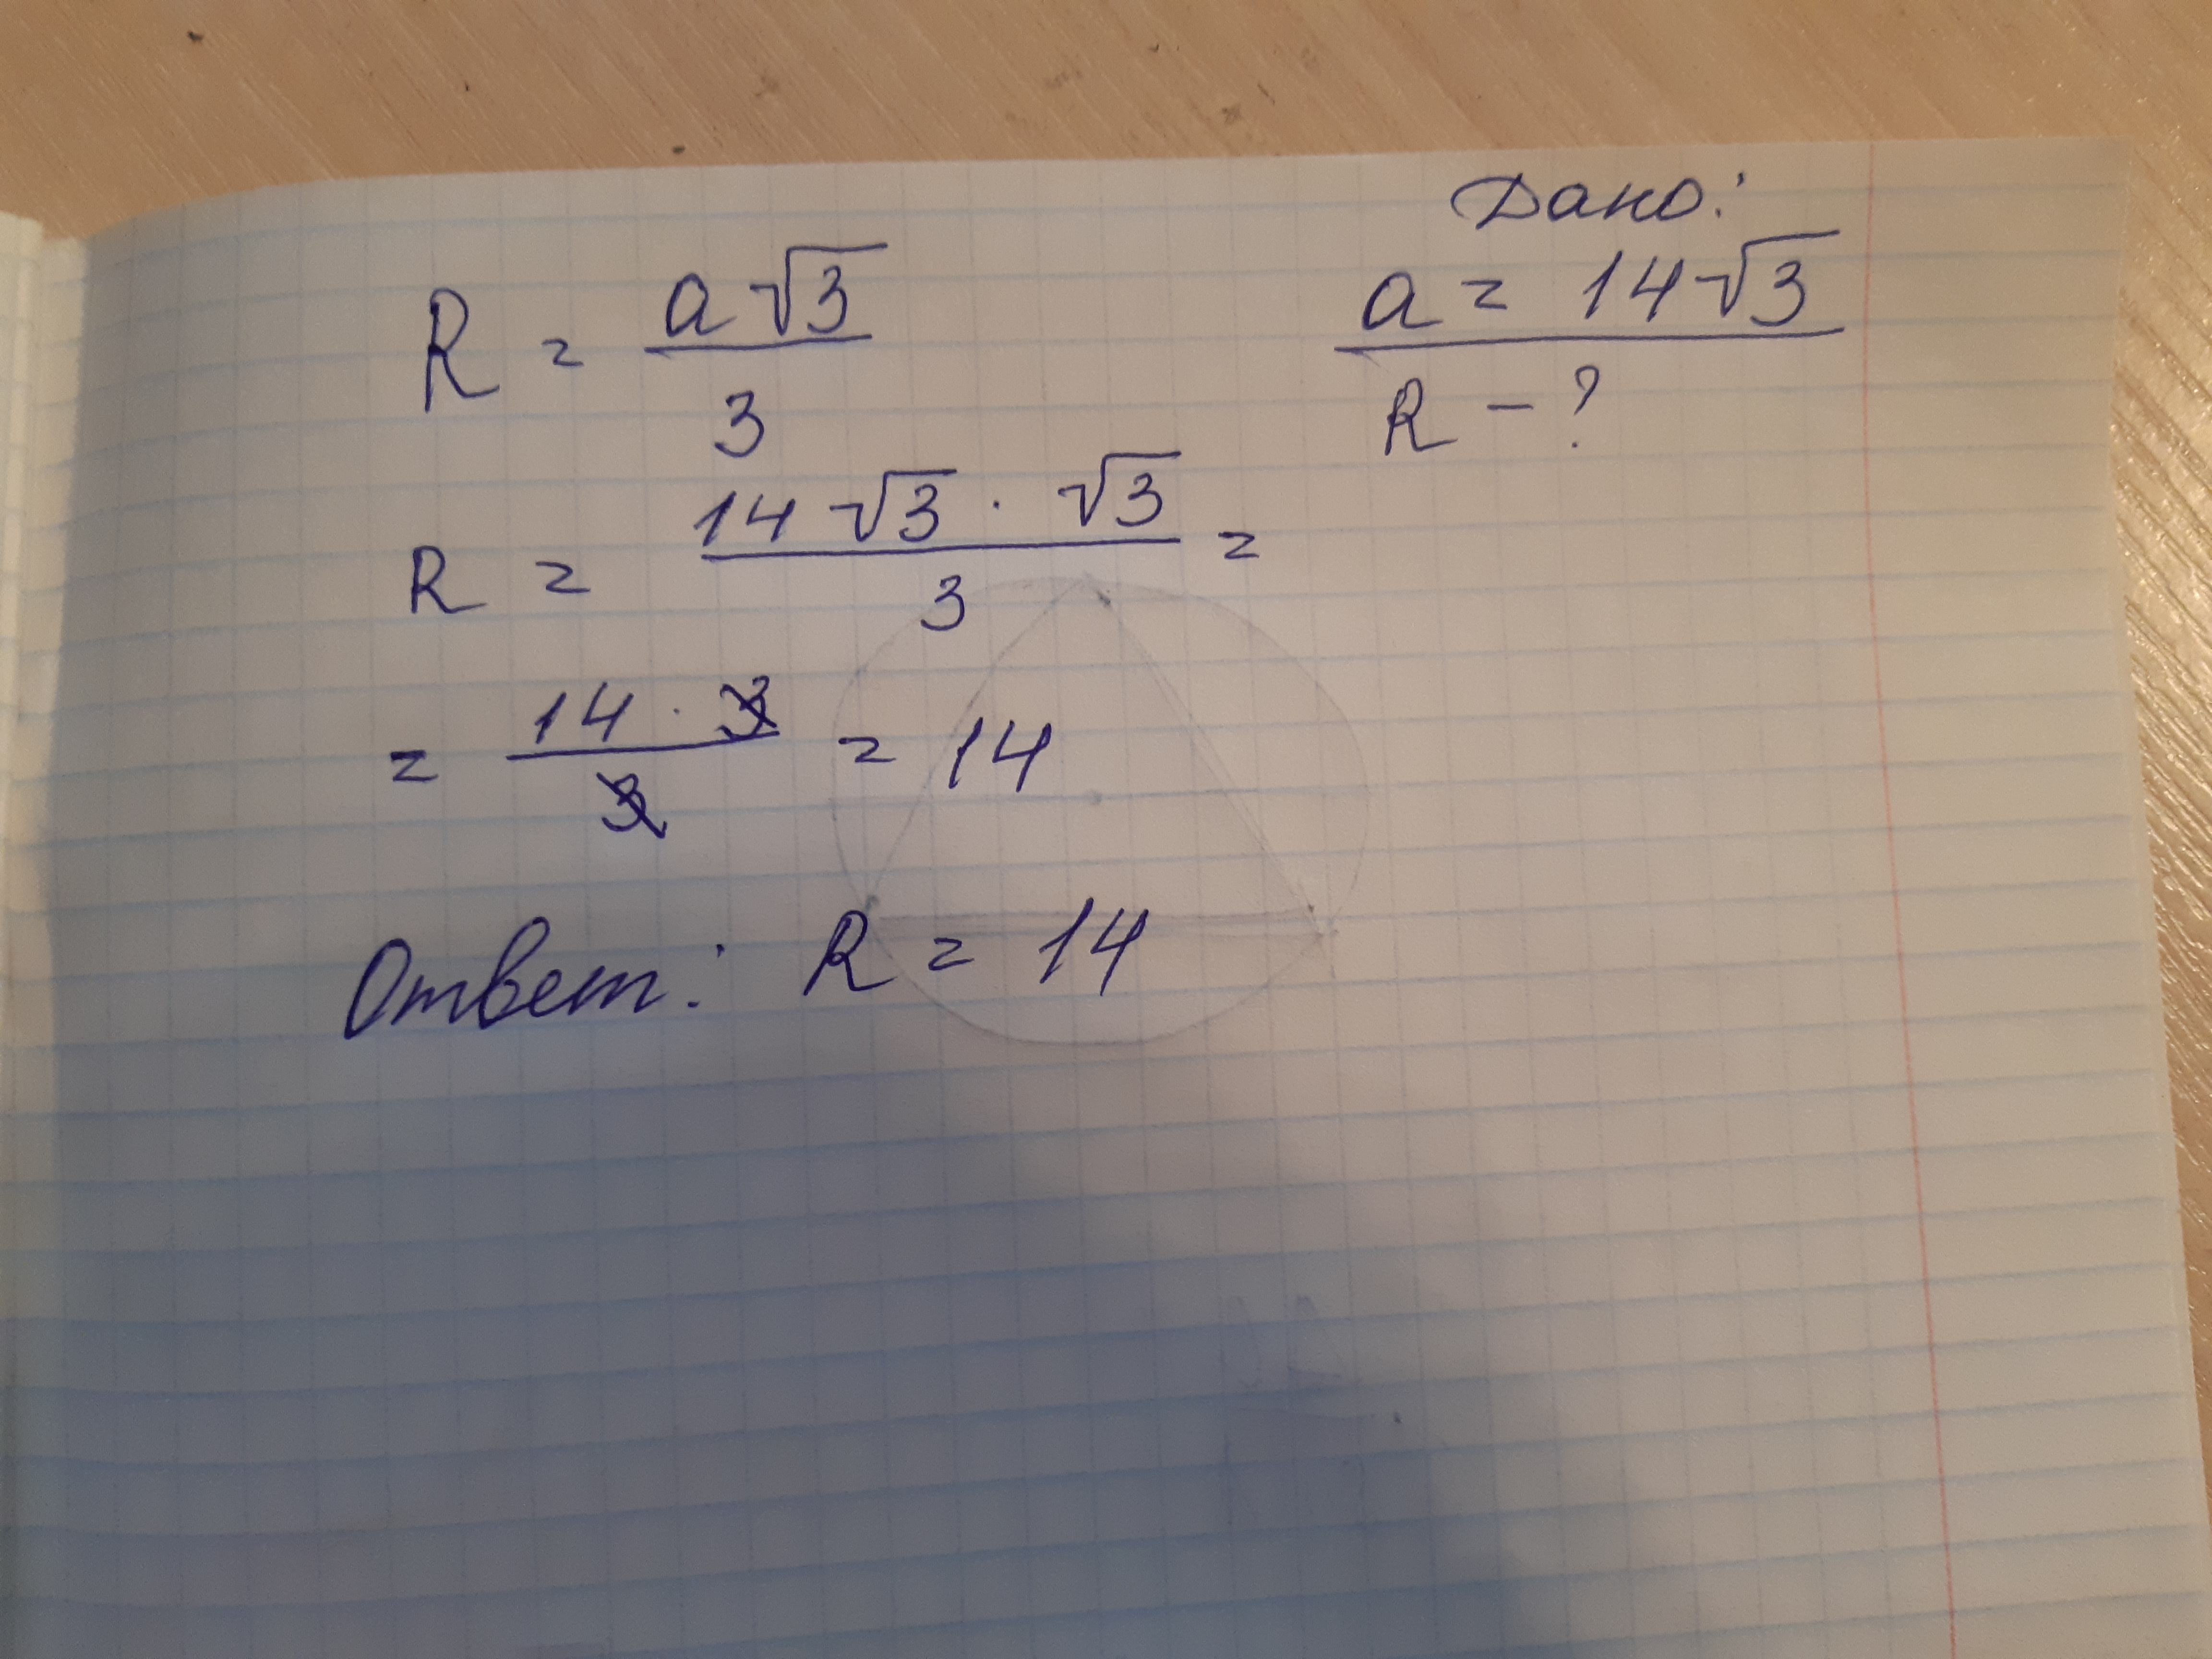 Дано:
a = 14√3
R - ?
R = a√3 / 3
R = 14√3 · √3 / 3 =
= 14 · 3 / 3 = 14
Ответ: R = 14